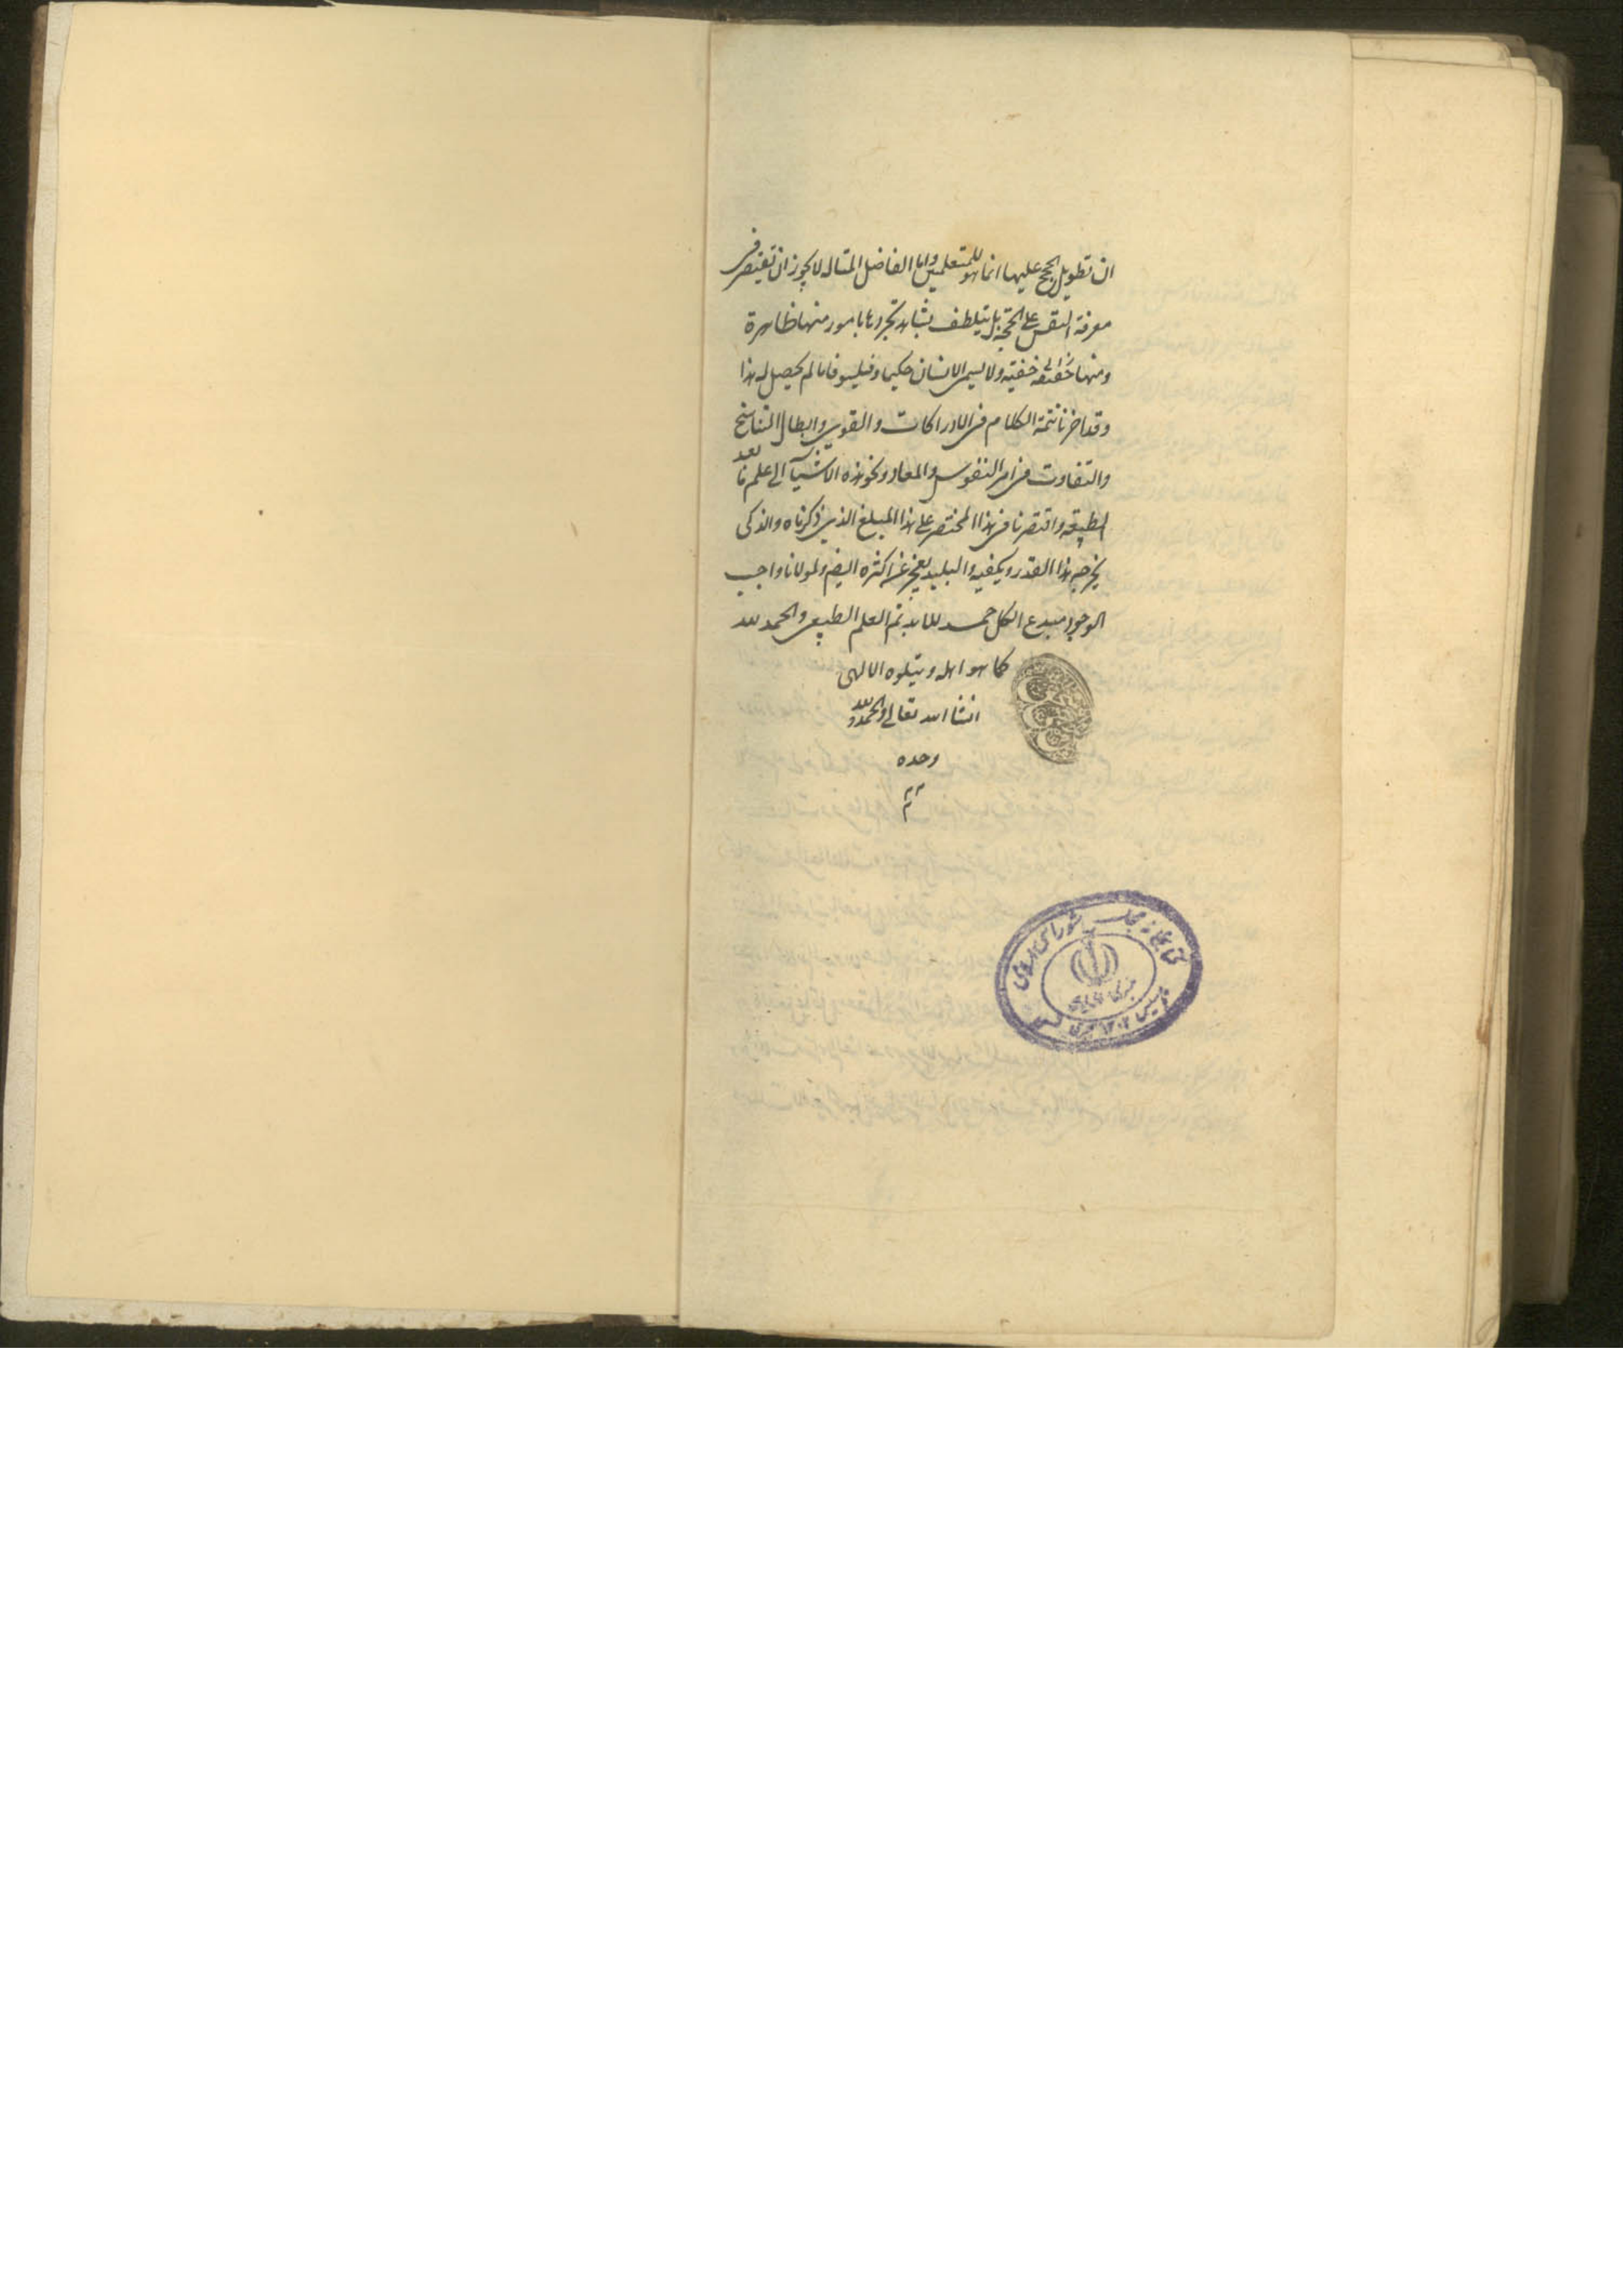 ان تطويل الحجج عليها انما هو للمتعلمين واما الفاضل المتاله لا يجوز ان يقتصر فى
معرفة النفس على الحجة بل يتلطف بشاهد تجردها بامور منها ظاهرة
ومنها خفية ولا يسمى الانسان حكيما وفيلسوفا ما لم يحصل له هذا
وقد اخرنا تتمة الكلام فى الادراكات والقوى وابطال التناسخ
والتفاوت فى امر النفوس والمعاد ونحو هذه الاشيآ الى علم ما بعد
الطبيعه واقتصرنا فى هذا المختصر على هذا المبلغ الذى ذكرناه والذكى
يخرجه هذا القدر ويكفيه والبليد يعجز عن اكثره ايضا ولمولانا واجب
الوجود مبدع الكل حمد للابد تم العلم الطبيعى والحمد لله
كما هو اهله ويتلوه الالهى
انشا الله تعالى والحمد لله
وحده
كتابخانه مجلس شوراى اسلامى
تاسيس ۱۳۰۲ هجرى